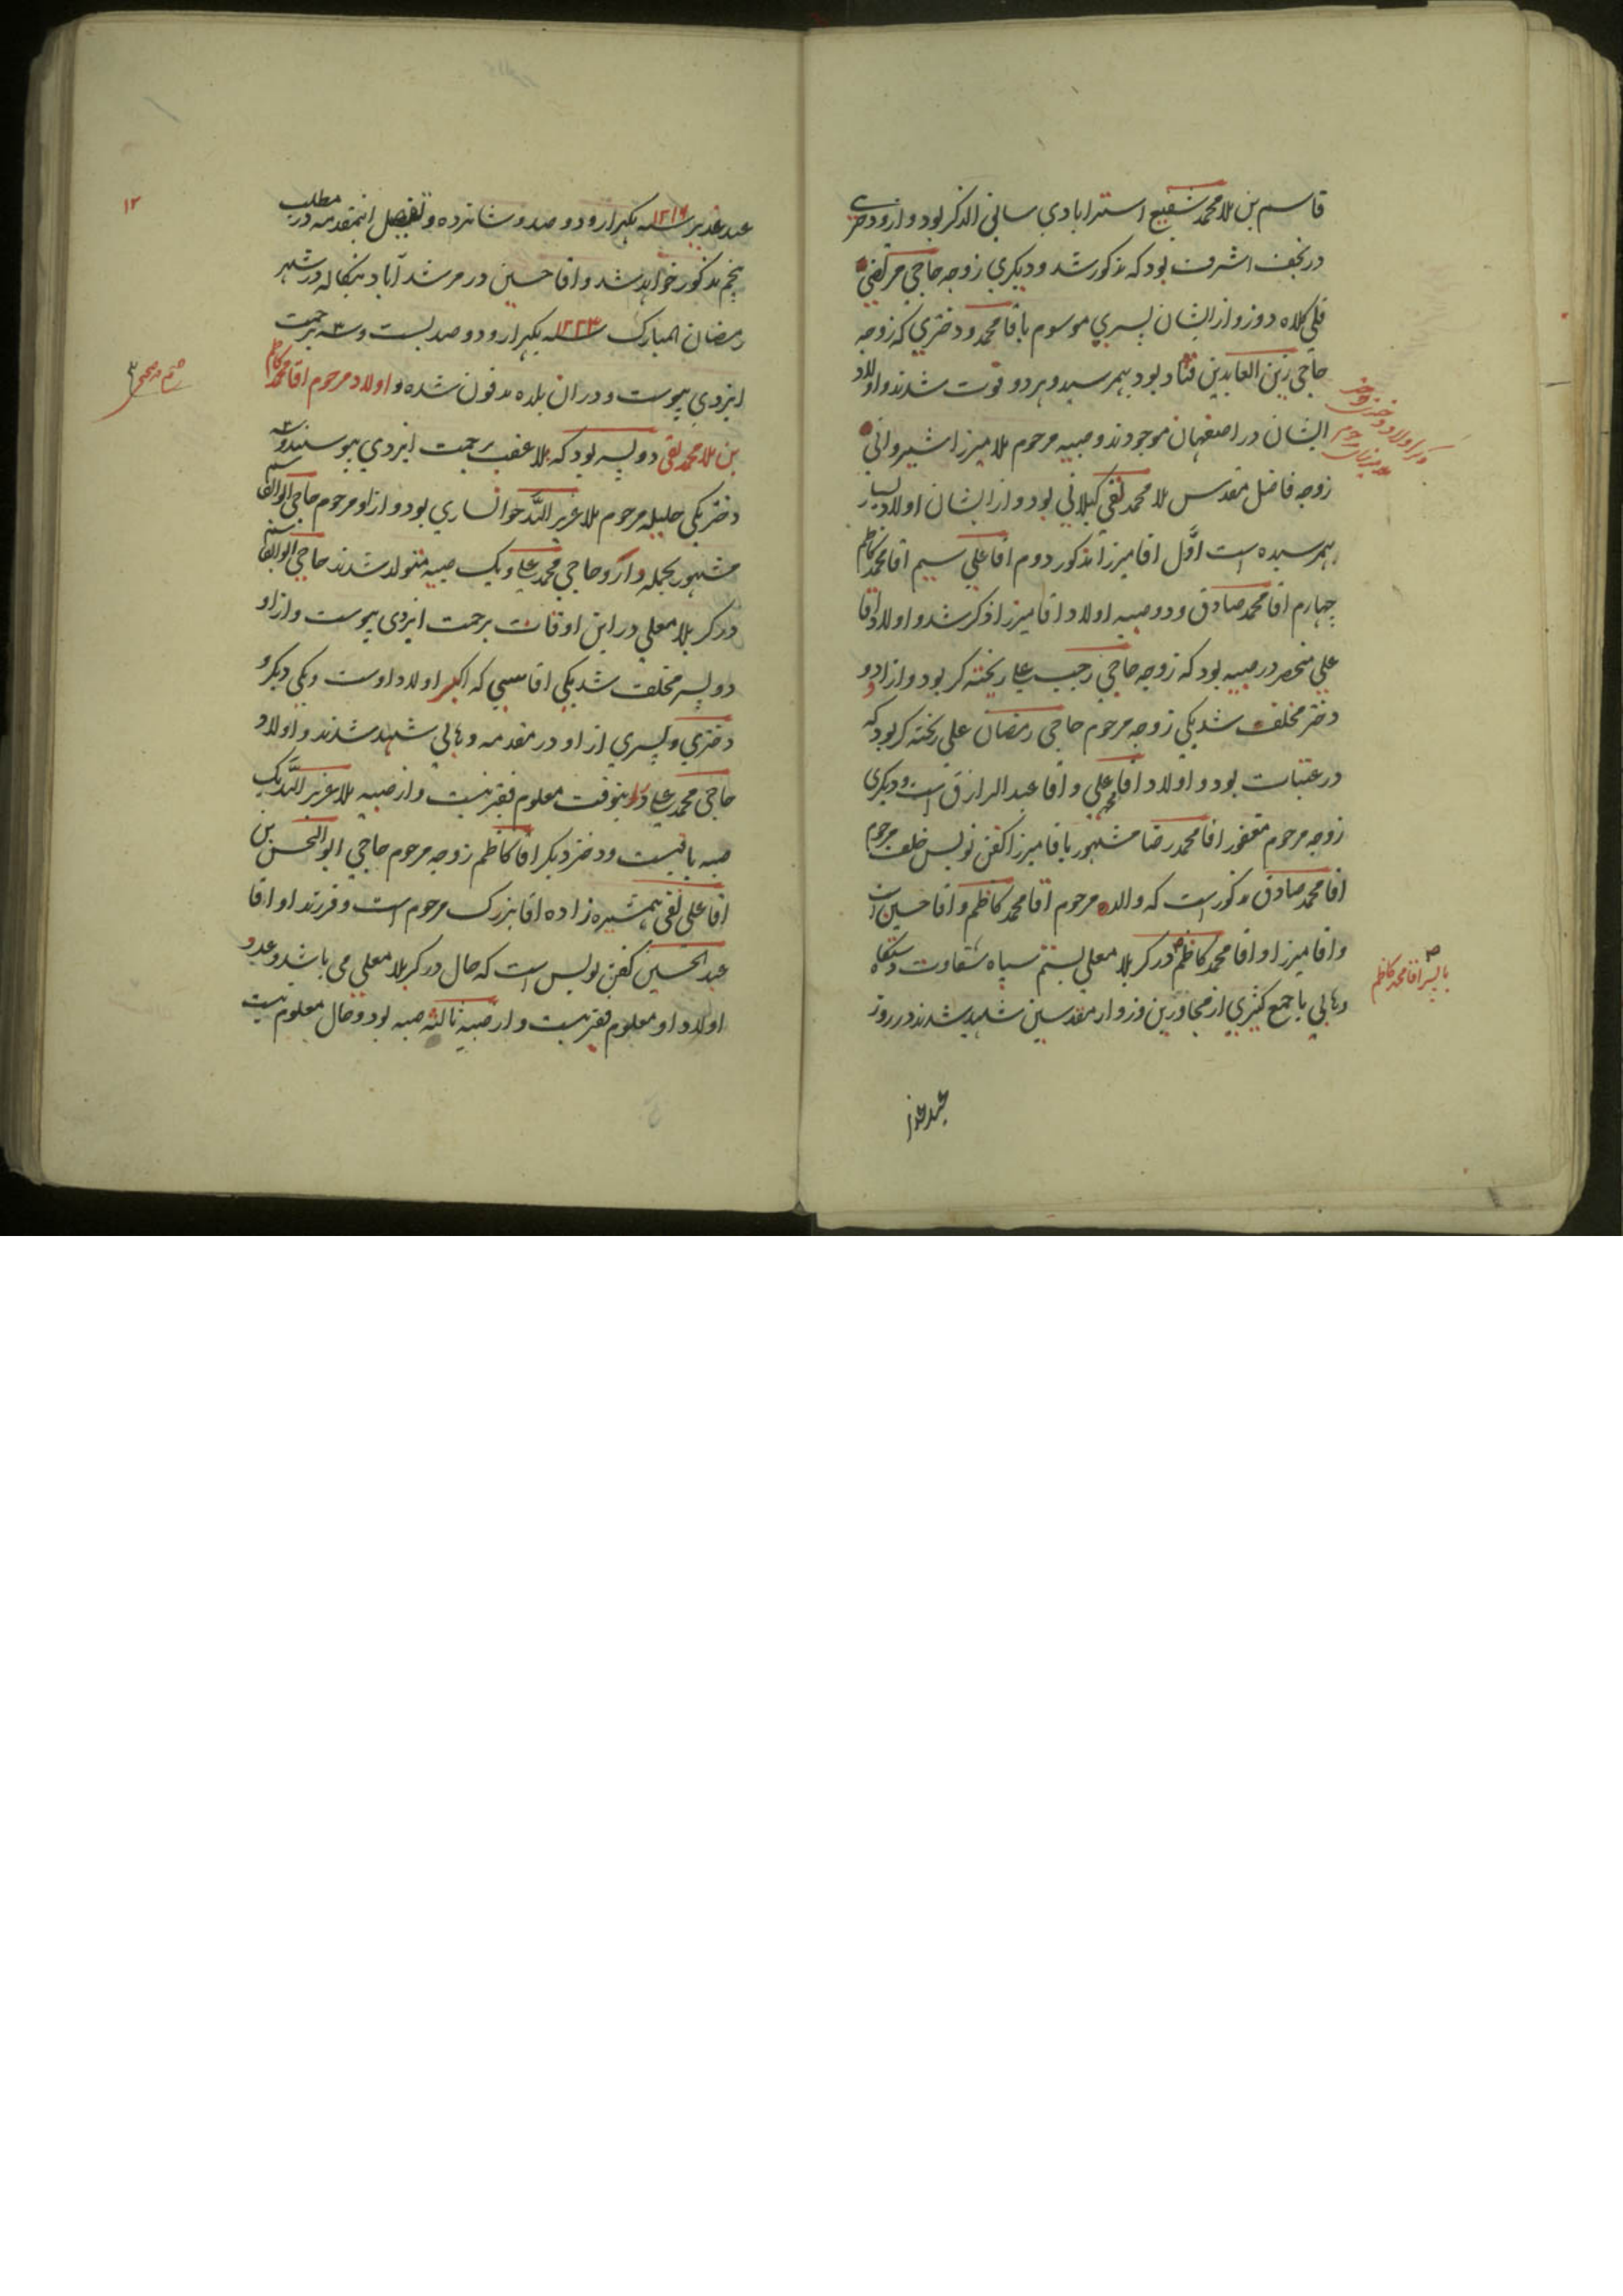 قاسم بن ملا محمد شفیع استرابادی سابق الذکر بود و ازو دختری
در نجف اشرف بود که مذکور شد و دیگری زوجه حاجی مرتضی
قلی کلاه دوز و از ایشان پسری موسوم باقا محمد و دختری که زوجه
حاجی زین العابدین قناد بود بهمرسید و هر دو فوت شدند و اولاد
ایشان در اصفهان موجودند و صبیه مرحوم ملا میرزا شیروانی
زوجه فاضل مقدس ملا محمد تقی گیلانی بود و از ایشان اولاد بسیار
بهمرسیده است اوّل اقا میرزا مذکور دوم اقا علی سیم اقا محمد کاظم
چهارم اقا محمد صادق و دو صبیه اولاد اقا میرزا ذکر شد و اولاد اقا
علی منحصر در صبیه بود که زوجه حاجی رجب علی ریخته گر بود و از او دو
دختر مخلف شد یکی زوجه مرحوم حاجی رمضان علی ریخته گر بود که
در عتبات بود و اولاد اقا علی و اقا عبد الرازق است و دیگری
زوجه مرحوم مغفور اقا محمد رضا مشهور باقا میرزا کفن نویس خلف مرحوم
اقا محمد صادق مذکور است که والد مرحوم اقا محمد کاظم و اقا حسین است
و اقا میرزا و اقا محمد کاظم در کربلا معلی بستم سپاه شقاوت دستگاه
وهابی با جمع کثیری از مجاورین و زوار مقدسین شهید شدند در روز
با پسر اقا محمد کاظم
عید غدیر
۱۲
عید غدیر سنه ۱۲۱۶ یکهزار و دو صد و شانزده و تفصیل اینمقدمه در مطلب
پنجم مذکور خواهد شد و اقا حسین در مرشد آباد بنگاله در شهر
رمضان المبارک سنه ۱۲۲۳ یکهزار و دو صد بست و سه برحمت
ایزدی پیوست و در ان بلاه مدفون شده و اولاد مرحوم اقا محمد کاظم
بن ملا محمد تقی دو پسر بود که بلا عقب برحمت ایزدی پیوستند و سه
دختر یکی حلیله مرحوم ملا عزیز اللّه خوانساری بود و از او مرحوم حاجی ابو القاسم
مشهور بجمله دارو حاجی محمد علی و یک صبیه متولد شدند حاجی ابو القاسم
در کربلا معلی در این اوقات برحمت ایزدی پیوست و از او
دو پسر مخلف شد یکی اقا سببی که اکبر اولاد اوست و یکی دیگر و
دختری و پسری از او در مقدمه وهابی شهید شدند و اولاد
حاجی محمد علی اینوقت معلوم فقیر نیست و از صبیه ملا عزیز اللّه یک
صبیه باقیست و دختر دیگر اقا کاظم زوجه مرحوم حاجی ابو الحسن بن
اقا علی نقی همشیره زاده اقا بزرگ مرحوم است و فرزند او اقا
عبد الحسین کفن نویس است که حال در کربلا معلی می باشد و عدد
اولاد او معلوم فقیر نیست و از صبیه ثالثه صبیه بود و حال معلوم نیست